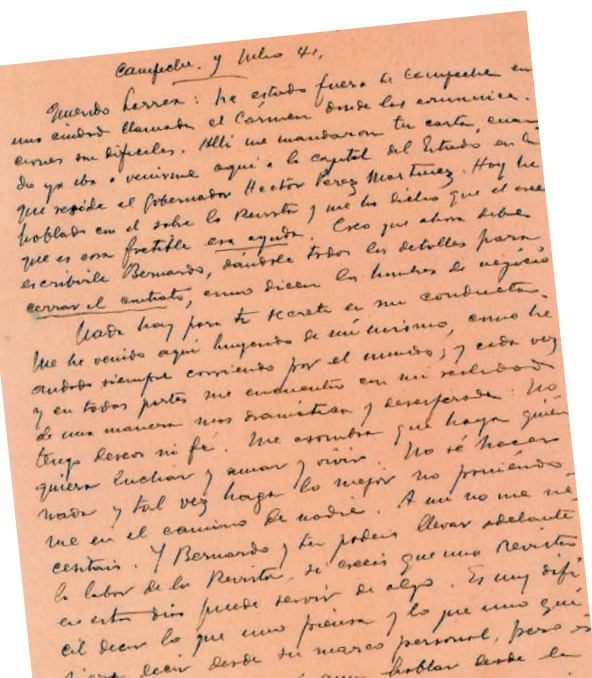 Campeche. y Julio 41.
Querido Larrea: he estado fuera de Campeche en
una ciudad llamada el Cármen donde las comunica-
ciones son difíciles. Allí me mandaron tu carta, cuan-
do ya iba a venirme aquí a la capital del Estado en la
que reside el Gobernador Hector Perez Martinez. Hoy he
hablado con él sobre la Revista y me ha dicho que él cree
que es cosa factible esa ayuda. Creo que ahora debes
escribirle Bernardo, dándole todos los detalles para
cerrar el contrato, como dicen los hombres de negocio
Nada hay para ti secreto en mi conducta.
Me he venido aquí huyendo de mí mismo, como he
andado siempre corriendo por el mundo; y cada vez
y en todas partes me encuentro con mi realidad
de una manera mas dramática y desesperada: No
tengo deseos ni fé. Me asombra que haya quién
quiera luchar y amar y vivir. No sé hacer
nada y tal vez haga lo mejor no poniéndo-
me en el camino de nadie. A mi no me ne-
cesitais. Y Bernardo y tu podeis llevar adelante
la labor de la Revista, si creeis que una Revista
en estos dias puede servir de algo. Es muy difi-
cil decir lo que uno piensa y lo que uno qui-
siera decir desde su marco personal, pero es
hablar desde la